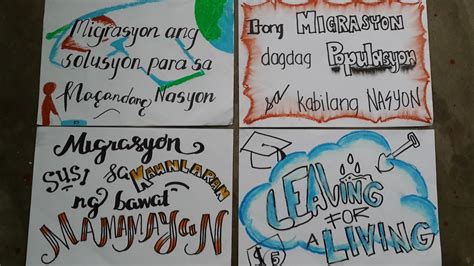 Migrasyon ang
solusyon para sa
Magandang Nasyon
Itong MIGRASYON
dagdag Populasyon
sa kabilang NASYON
Migrasyon
SUSI sa KAUNLARAN
ng bawat
MAMAMAYAN
LEAVING
FOR
A LIVING